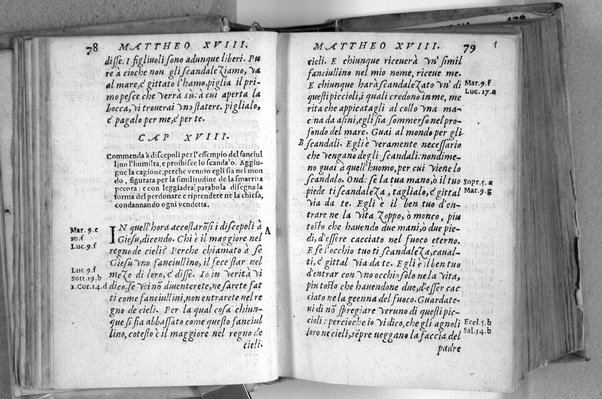 78 MATTHEO XVIII.
disse. I figliuoli sono adunque liberi. Pu
re à cioche non gli scandaleziamo, va
al mare, e' gittato l'hamo, piglia il pri
mo pesce che verrà sù: à cui aperta la
bocca, vi troverai uno statere. piglialo,
e' pagalo per me, e' per te.
CAP XVIII.
Commenda à discepoli per l'essempio del fanciul
lino l'humiltà, e proibisce lo scandalo. Aggiu-
gne la cagione, perche venuto egli sia nel mon
do, figurata per la similitudine de la smarrita
pecora: e con leggiadra parabola disegna la
forma del perdonare e riprendere ne la chiesa,
condannando ogni vendetta.
Mar. 9.e
10.f
Luc. 9.f
Luc. 9.f
Sott. 19.b
1. Cor. 14.d
A
IN quell'hora accostarõsi i discepoli à
Giesu, dicendo. Chi è il maggiore nel
regno de cieli? Perche chiamato à se
Giesu vno fanciullino, il fece star nel
mezo di loro, e' disse. Io in verità vi
dico, se voi nõ diventerete, ne sarete fat
ti come fanciullini, non entrarete nel re
gno de cieli. Per la qual cosa chiun-
que si sia abbassato come questo fanciul
lino, cotesto è il maggiore nel regno de
cieli.
MATTHEO XVIII. 79
cieli. E chiunque riceverà vn' simil
fanciullino nel mio nome, riceve me.
E chiunque harà scandalezato vn' di
questi piccioli, i quali credono in me, me
rita che appicatagli al collo vna ma-
cina da asini, egli sia sommerso nel pro-
fondo del mare. Guai al mondo per gli
scandali. Egli è veramente necessario
che vengano degli scandali: nondime-
no guai à quell'huomo, per cui viene lo
scandalo. Ond' se la tua mano, ò il tuo
piede ti scandaleza, taglialo, e' gittal
via da te. Egli è il ben tuo d'en-
trare ne la vita zoppo, ò monco, piu
tosto che havendo due mani, ò due pie-
di, d'esser cacciato nel fuoco eterno.
E se l'occhio tuo ti scandaleza, caval-
ti, e' gittal via da te. Egli è il ben tuo
d'entrar con vn occhio solo ne la vita,
piu tosto che havendone due, d'esser cac
ciato ne la geenna del fuoco. Guardate-
vi di nõ spregiare veruno di questi pic-
cioli: percioche io vi dico, che gli agnoli
loro ne cieli, sẽpre veggano la faccia del
padre
B
Mar. 9.f
Luc. 17.a
Sopr. 5.a
Mar. 9.g
Eccl. 5.b
Sal. 34.b